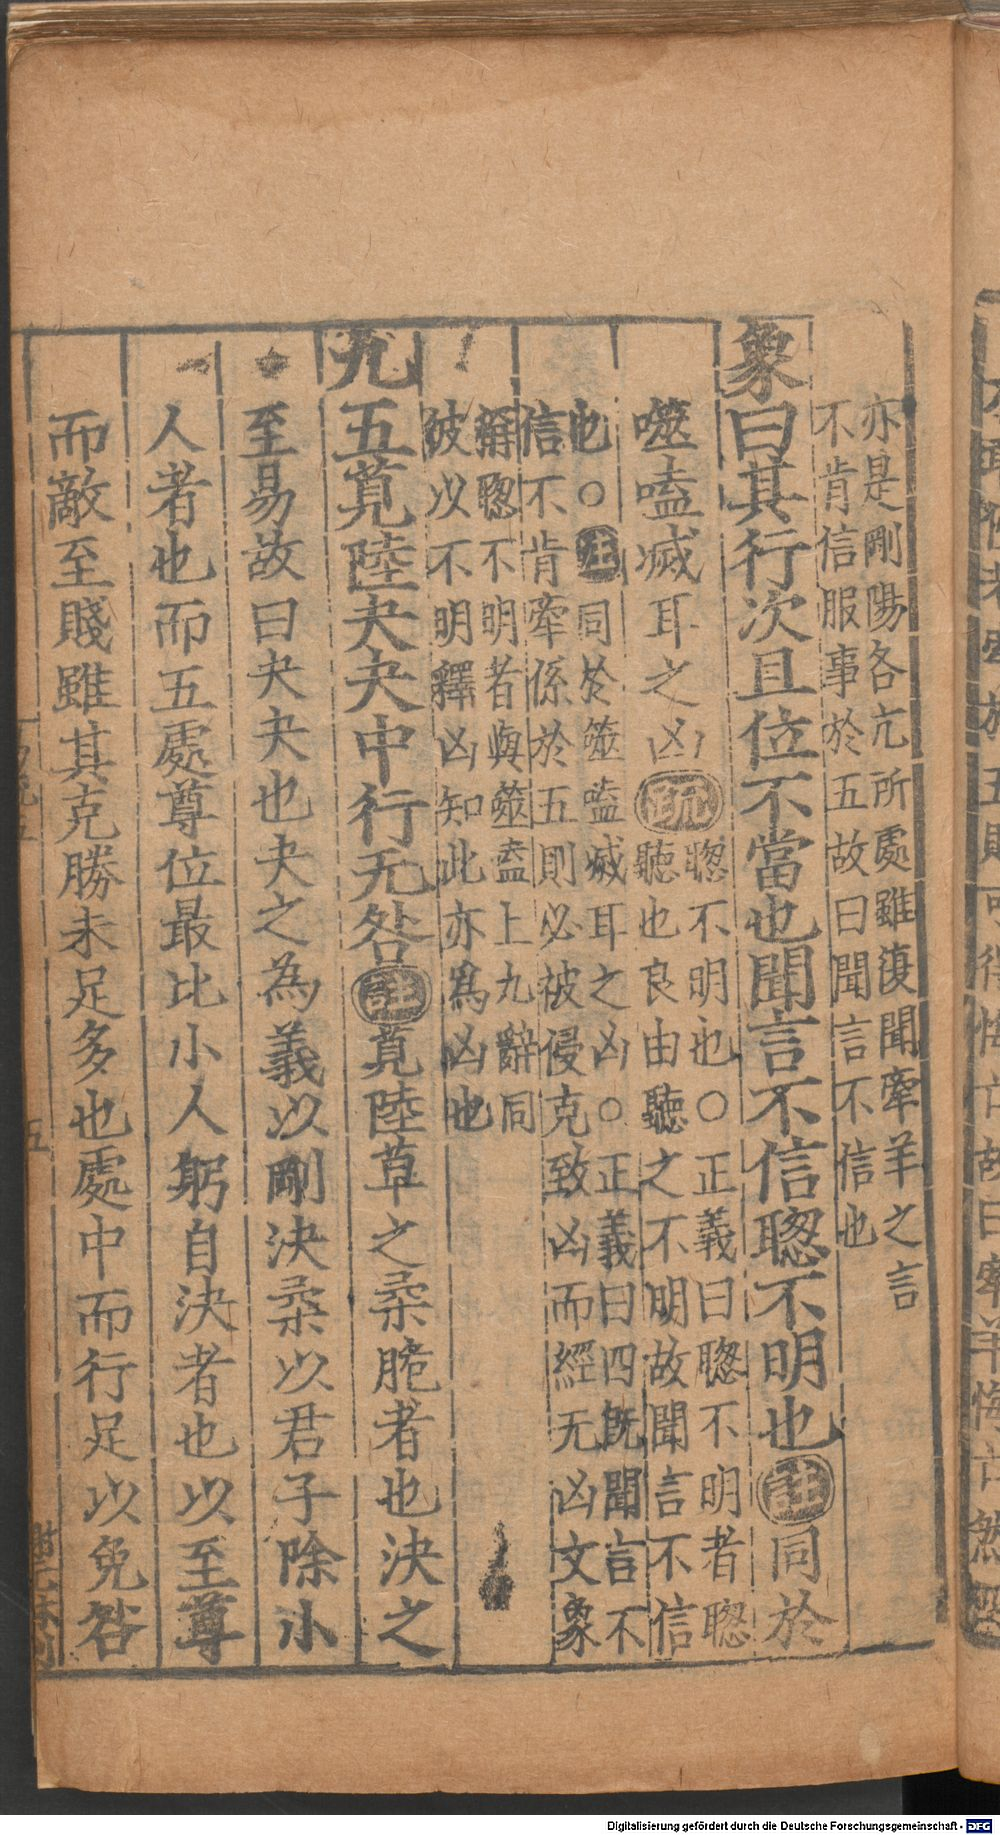 亦是剛陽各亢所處雖復聞牽羊之言
不肯信服事於五故曰聞言不信也
象曰其行次且位不當也聞言不信聦不明也註同於
噬嗑滅耳之凶疏
聦不明也○正義曰聦不明者聦
聽也良由聽之不明故聞言不信
也○註同於噬嗑滅耳之凶○正義曰四既聞言不
信不肯牽係於五則必被侵克致凶而經无凶文象
稱聦不明者與噬嗑上九辭同
彼以不明釋凶知此亦爲凶也
九五莧陸夬夬中行无咎註莧陸草之柔脆者也決之
至易故曰夬夬也夬之為義以剛決柔以君子除小
人者也而五處尊位最比小人躬自決者也以至尊
而敵至賤雖其克勝未足多也處中而行足以免咎
五
Digitalisierung gefördert durch die Deutsche Forschungsgemeinschaft - DFG